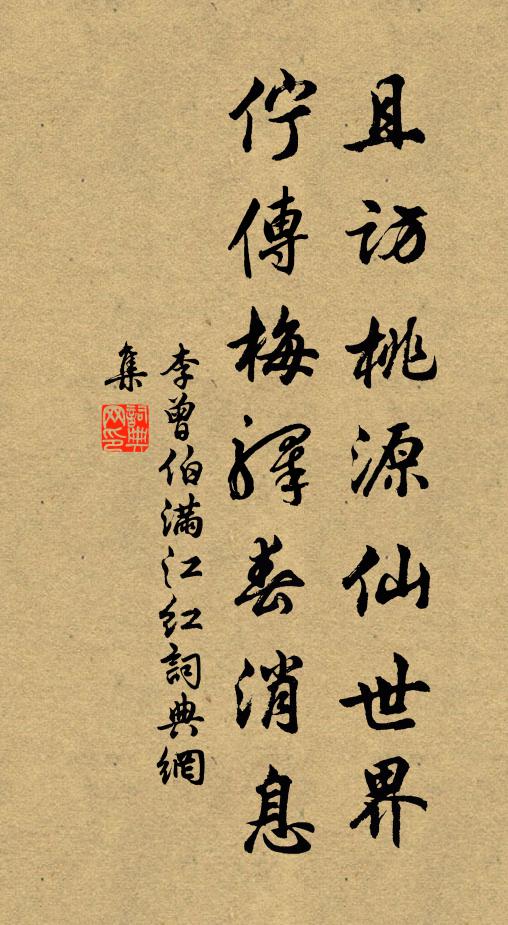 且訪桃源仙世界
佇傳梅驛春消息
李曾伯滿江红詞典網
集
詞典
网印